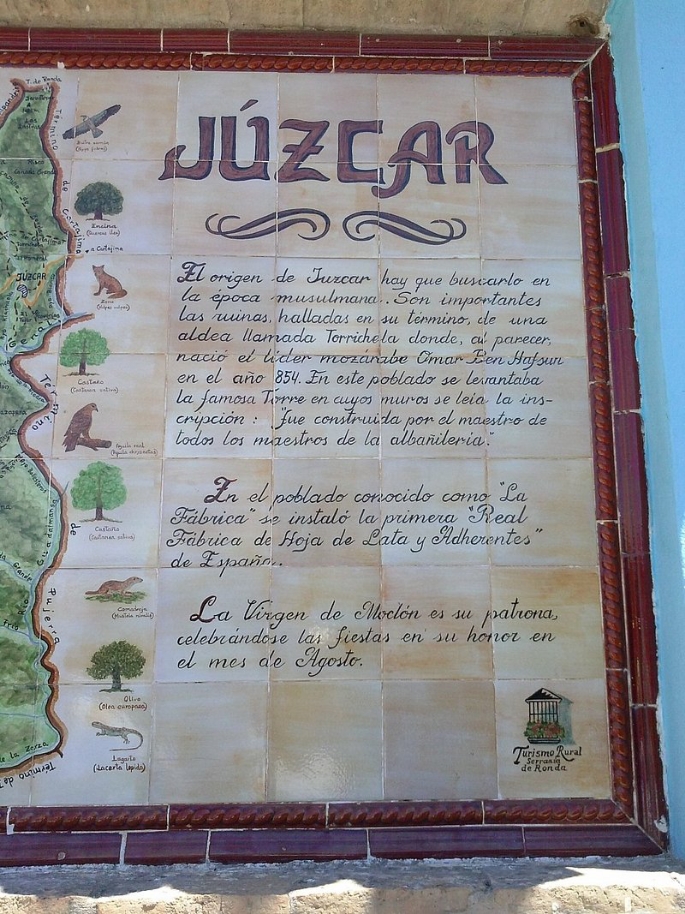 JÚZCAR
El origen de Juzcar hay que buscarlo en
la época musulmana.. Son importantes
las ruinas, halladas en su término, de una
aldea llamada Torrichela donde, al parecer,
nació el líder mozárabe Omar Ben Hafsun
en el año 854. En este poblado se levantaba
la famosa Torre en cuyos muros se leía la ins-
cripción : "fue construida por el maestro de
todos los maestros de la albañilería."
En el poblado conocido como "La
Fábrica" se instaló la primera "Real
Fábrica de Hoja de Lata y Adherentes"
de España.
La Virgen de Moclón es su patrona,
celebrándose las fiestas en su honor en
el mes de Agosto.
Turismo Rural
Serranía
de Ronda
Encina
Castaño
(Castanea sativa)
Águila real
Castaño
(Castanea sativa)
Comadreja
(Mustela nivalis)
Olivo
(Olea europaea)
Lagarto
(Lacerta lepida)
JUZCAR
Término
de Cartajima
Término
de
Pujerra
Término de